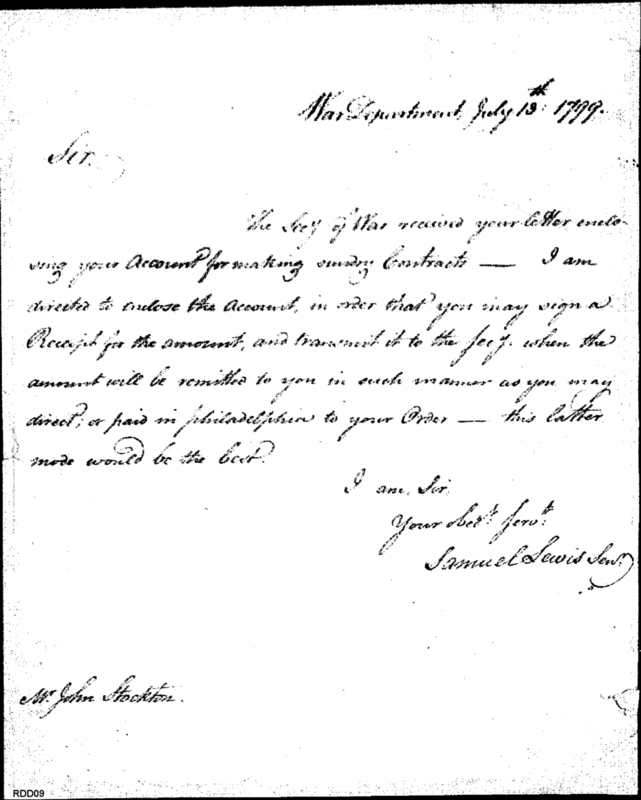 War Department, July 13th 1799.
Sir.
The Secy of War received your letter enclo-
sing your Account for making sundry Contracts — I am
directed to enclose the Account, in order that you may sign a
Receipt for the amount, and transmit it to the Secy. when the
amount will be remitted to you in such manner as you may
direct; or paid in philadelphia to your Order — this latter
mode would be the best.
I am, Sir,
Your obet. Servt.
Samuel Lewis Senr.
Mr. John Stockton.
RDD09